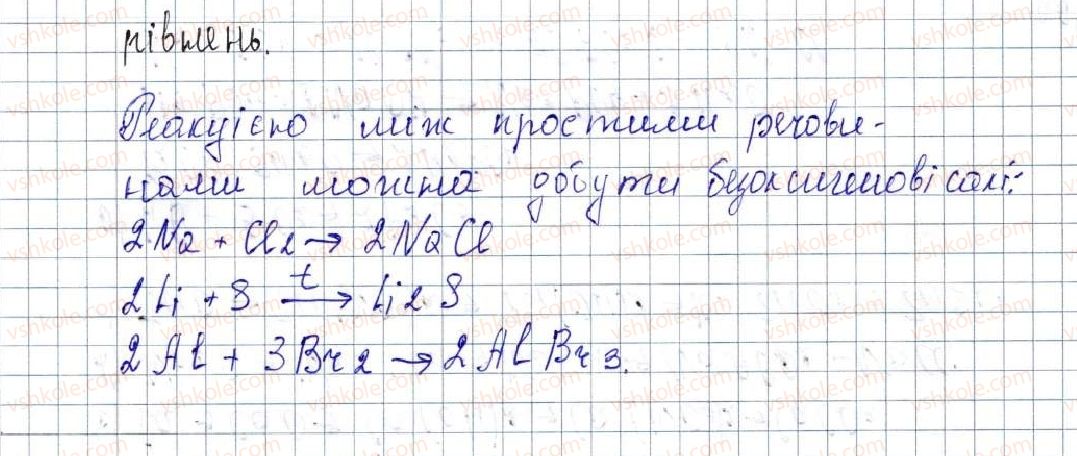 рівнень.
Реакцією між простими речови-
нами можна добути безоксигенові солі:
2Na + Cl2 → 2NaCl
2Li + S t→ Li2S
2Al + 3Br2 → 2AlBr3.